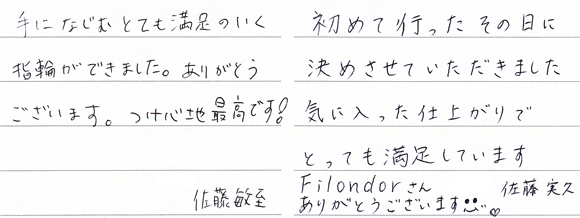 手になじむとても満足のいく
指輪ができました。ありがとう
ございます。つけ心地最高です!
佐藤敏至
初めて行ったその日に
決めさせていただきました
気に入った仕上がりで
とっても満足しています
Filondorさん
ありがとうございます
佐藤 実久